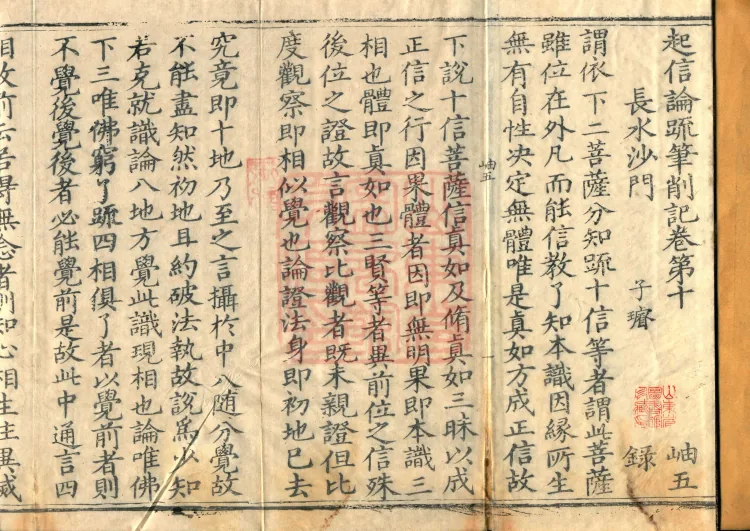 起信論疏筆削記卷第十 岫五
長水沙門 子璿 錄
謂依下二菩薩分知疏十信等者謂此菩薩
雖位在外凡而能信教了知本識因緣所生
無有自性決定無體唯是真如方成正信故
岫五
下說十信菩薩信真如及脩真如三昧以成
正信之行因果體者因即無明果即本識三
相也體即真如也三賢等者異前位之信殊
後位之證故言觀察比觀者既未親證但比
度觀察即相似覺也論證法身即初地已去
究竟即十地乃至之言攝於中八随分覺故
不能盡知然初地且約破法執故說為少知
若克就識論八地方覺此識現相也論唯佛
下三唯佛窮了疏四相俱了者以覺前者則
不覺後覺後者必能覺前是故此中通言四
相故前云若得無念者則知心相生住異滅